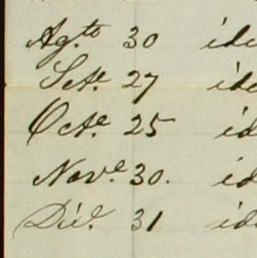 Agto 30 id
Sete 27 id
Octe 25 id
Nove 30. id
Dice 31 id